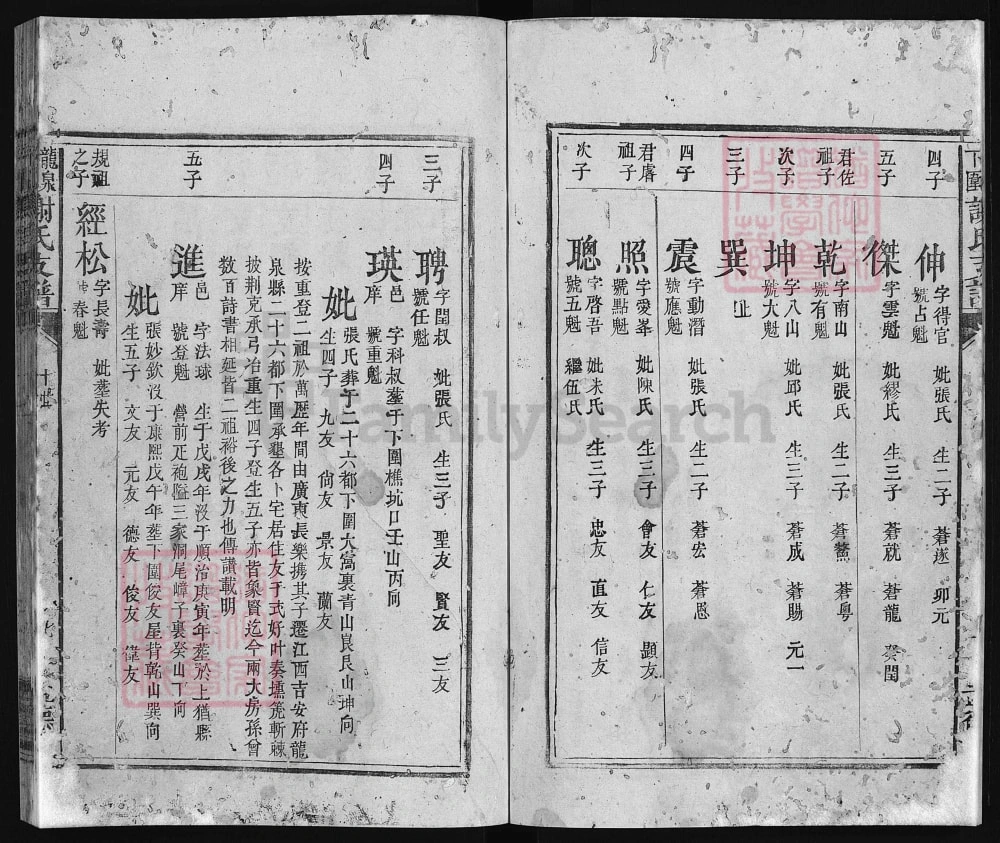 四子
伸 字得官 妣張氏 生二子 蒼遂 卯元
號占魁
五子
傑 字雲魁 妣繆氏 生三子 蒼就 蒼龍 癸閏
君佐祖子
乾 字南山 妣張氏 生二子 蒼鰲 蒼粤
號有魁
次子
坤 字八山 妣邱氏 生三子 蒼成 蒼賜 元一
號大魁
三子
巽 止
四子
震 字動潛 妣張氏 生二子 蒼宏 蒼恩
號應魁
君睿祖子
照 字愛峯 妣陳氏 生三子 會友 仁友 顯友
號點魁
次子
聰 字啓吾 妣朱氏 生三子 忠友 直友 信友
號五魁 繼伍氏
三子
聘 字閏叔 妣張氏 生三子 聖友 賢友 三友
號任魁
四子
瑛 邑庠 字科叔塟于下圍樵坑口壬山丙向
號重魁
妣 張氏葬于二十六都下圍大窩裏青山艮艮山坤向
生四子 九友 尙友 景友 蘭友
按重登二祖於萬歷年間由廣東長樂携其子遷江西吉安府龍
泉縣二十六都下圍承墾各卜宅居住友于式好叶奏壎箎斬棘
披荆克承弓冶重生四子登生五子亦皆象賢迄今兩大房孫曾
数百詩書相延皆二祖裕後之力也傳讚載明
五子
進 邑庠 字法球 生于戊戌年沒于順治庚寅年塟於上猶縣
號登魁 營前疋袍隘三家洞尾嶂子裏癸山丁向
妣 張妙欽沒于康熙戊午年塟下圍俊友屋背乾山巽向
生五子 文友 元友 德友 俊友 偉友
規祖之子
經松 字長壽 妣塟失考
春魁
龍泉謝氏支譜
FamilySearch